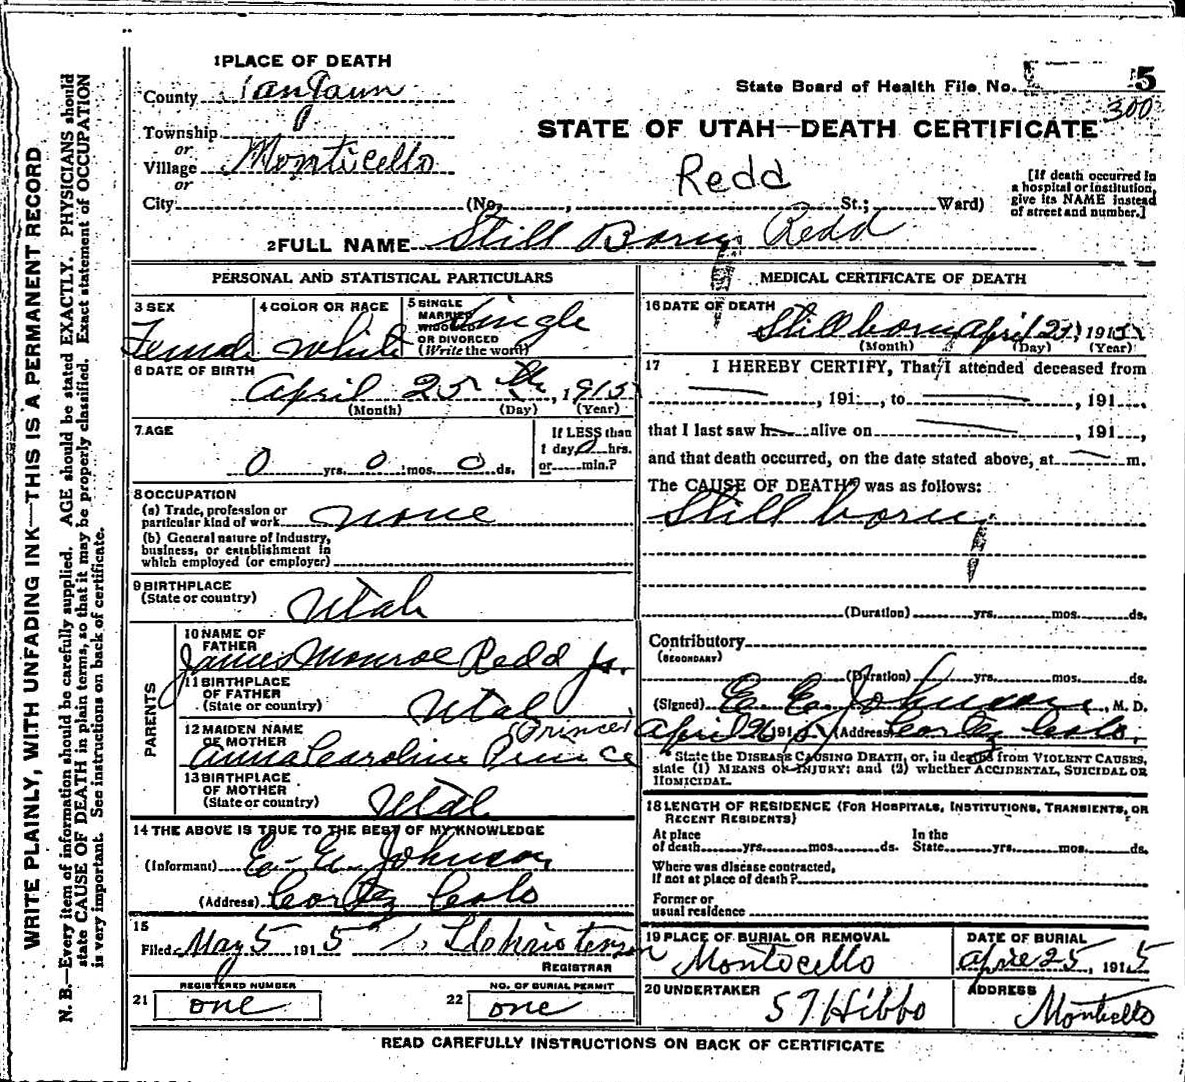 1 PLACE OF DEATH
County San Juan
State Board of Health File No. 5
300
Township
or
Village Monticello
or
City
STATE OF UTAH—DEATH CERTIFICATE
Redd
(No. , St.; Ward)
[If death occurred in
a hospital or institution,
give its NAME instead
of street and number.]
2 FULL NAME Still Born Redd
PERSONAL AND STATISTICAL PARTICULARS
3 SEX
Female
4 COLOR OR RACE
White
5 SINGLE
MARRIED
WIDOWED
OR DIVORCED
(Write the word)
Single
6 DATE OF BIRTH
April 25th, 1915
(Month) (Day) (Year)
7. AGE
0 yrs. 0 mos. 0 ds.
If LESS than
1 day, 0 hrs.
or min.?
8 OCCUPATION
(a) Trade, profession or
particular kind of work none
(b) General nature of Industry,
business, or establishment in
which employed (or employer)
9 BIRTHPLACE
(State or country)
Utah
PARENTS
10 NAME OF
FATHER
James Monroe Redd Jr.
11 BIRTHPLACE
OF FATHER
(State or country)
Utah
12 MAIDEN NAME
OF MOTHER
(Prince)
Anna Caroline Prince
13 BIRTHPLACE
OF MOTHER
(State or country)
Utah
14 THE ABOVE IS TRUE TO THE BEST OF MY KNOWLEDGE
(Informant) E. E. Johnson
(Address) Cortez Colo
15
Filed May 5 1915
REGISTRAR
REGISTERED NUMBER
21 one
NO. OF BURIAL PERMIT
22 one
MEDICAL CERTIFICATE OF DEATH
16 DATE OF DEATH
Stillborn April 25, 1915
(Month) (Day) (Year)
17 I HEREBY CERTIFY, That I attended deceased from
, 191 , to , 191 ,
that I last saw h alive on , 191 ,
and that death occurred, on the date stated above, at m.
The CAUSE OF DEATH* was as follows:
Still born
(Duration) yrs. mos. ds.
Contributory
(SECONDARY)
(Duration) yrs. mos. ds.
(Signed) E. E. Johnson, M. D.
April 26 1915 (Address) Cortez Colo.
*State the DISEASE CAUSING DEATH, or, in deaths from VIOLENT CAUSES,
state (1) MEANS OF INJURY; and (2) whether ACCIDENTAL, SUICIDAL OR
HOMICIDAL.
18 LENGTH OF RESIDENCE (FOR HOSPITALS, INSTITUTIONS, TRANSIENTS, OR
RECENT RESIDENTS)
At place
of death yrs. mos. ds.
In the
State yrs. mos. ds.
Where was disease contracted,
if not at place of death?
Former or
usual residence
19 PLACE OF BURIAL OR REMOVAL
Monticello
DATE OF BURIAL
April 25, 1915
20 UNDERTAKER
ADDRESS
Monticello
READ CAREFULLY INSTRUCTIONS ON BACK OF CERTIFICATE
WRITE PLAINLY, WITH UNFADING INK—THIS IS A PERMANENT RECORD
N. B.—Every item of information should be carefully supplied. AGE should be stated EXACTLY. PHYSICIANS should
state CAUSE OF DEATH in plain terms, so that it may be properly classified. Exact statement of OCCUPATION
is very important. See instructions on back of certificate.